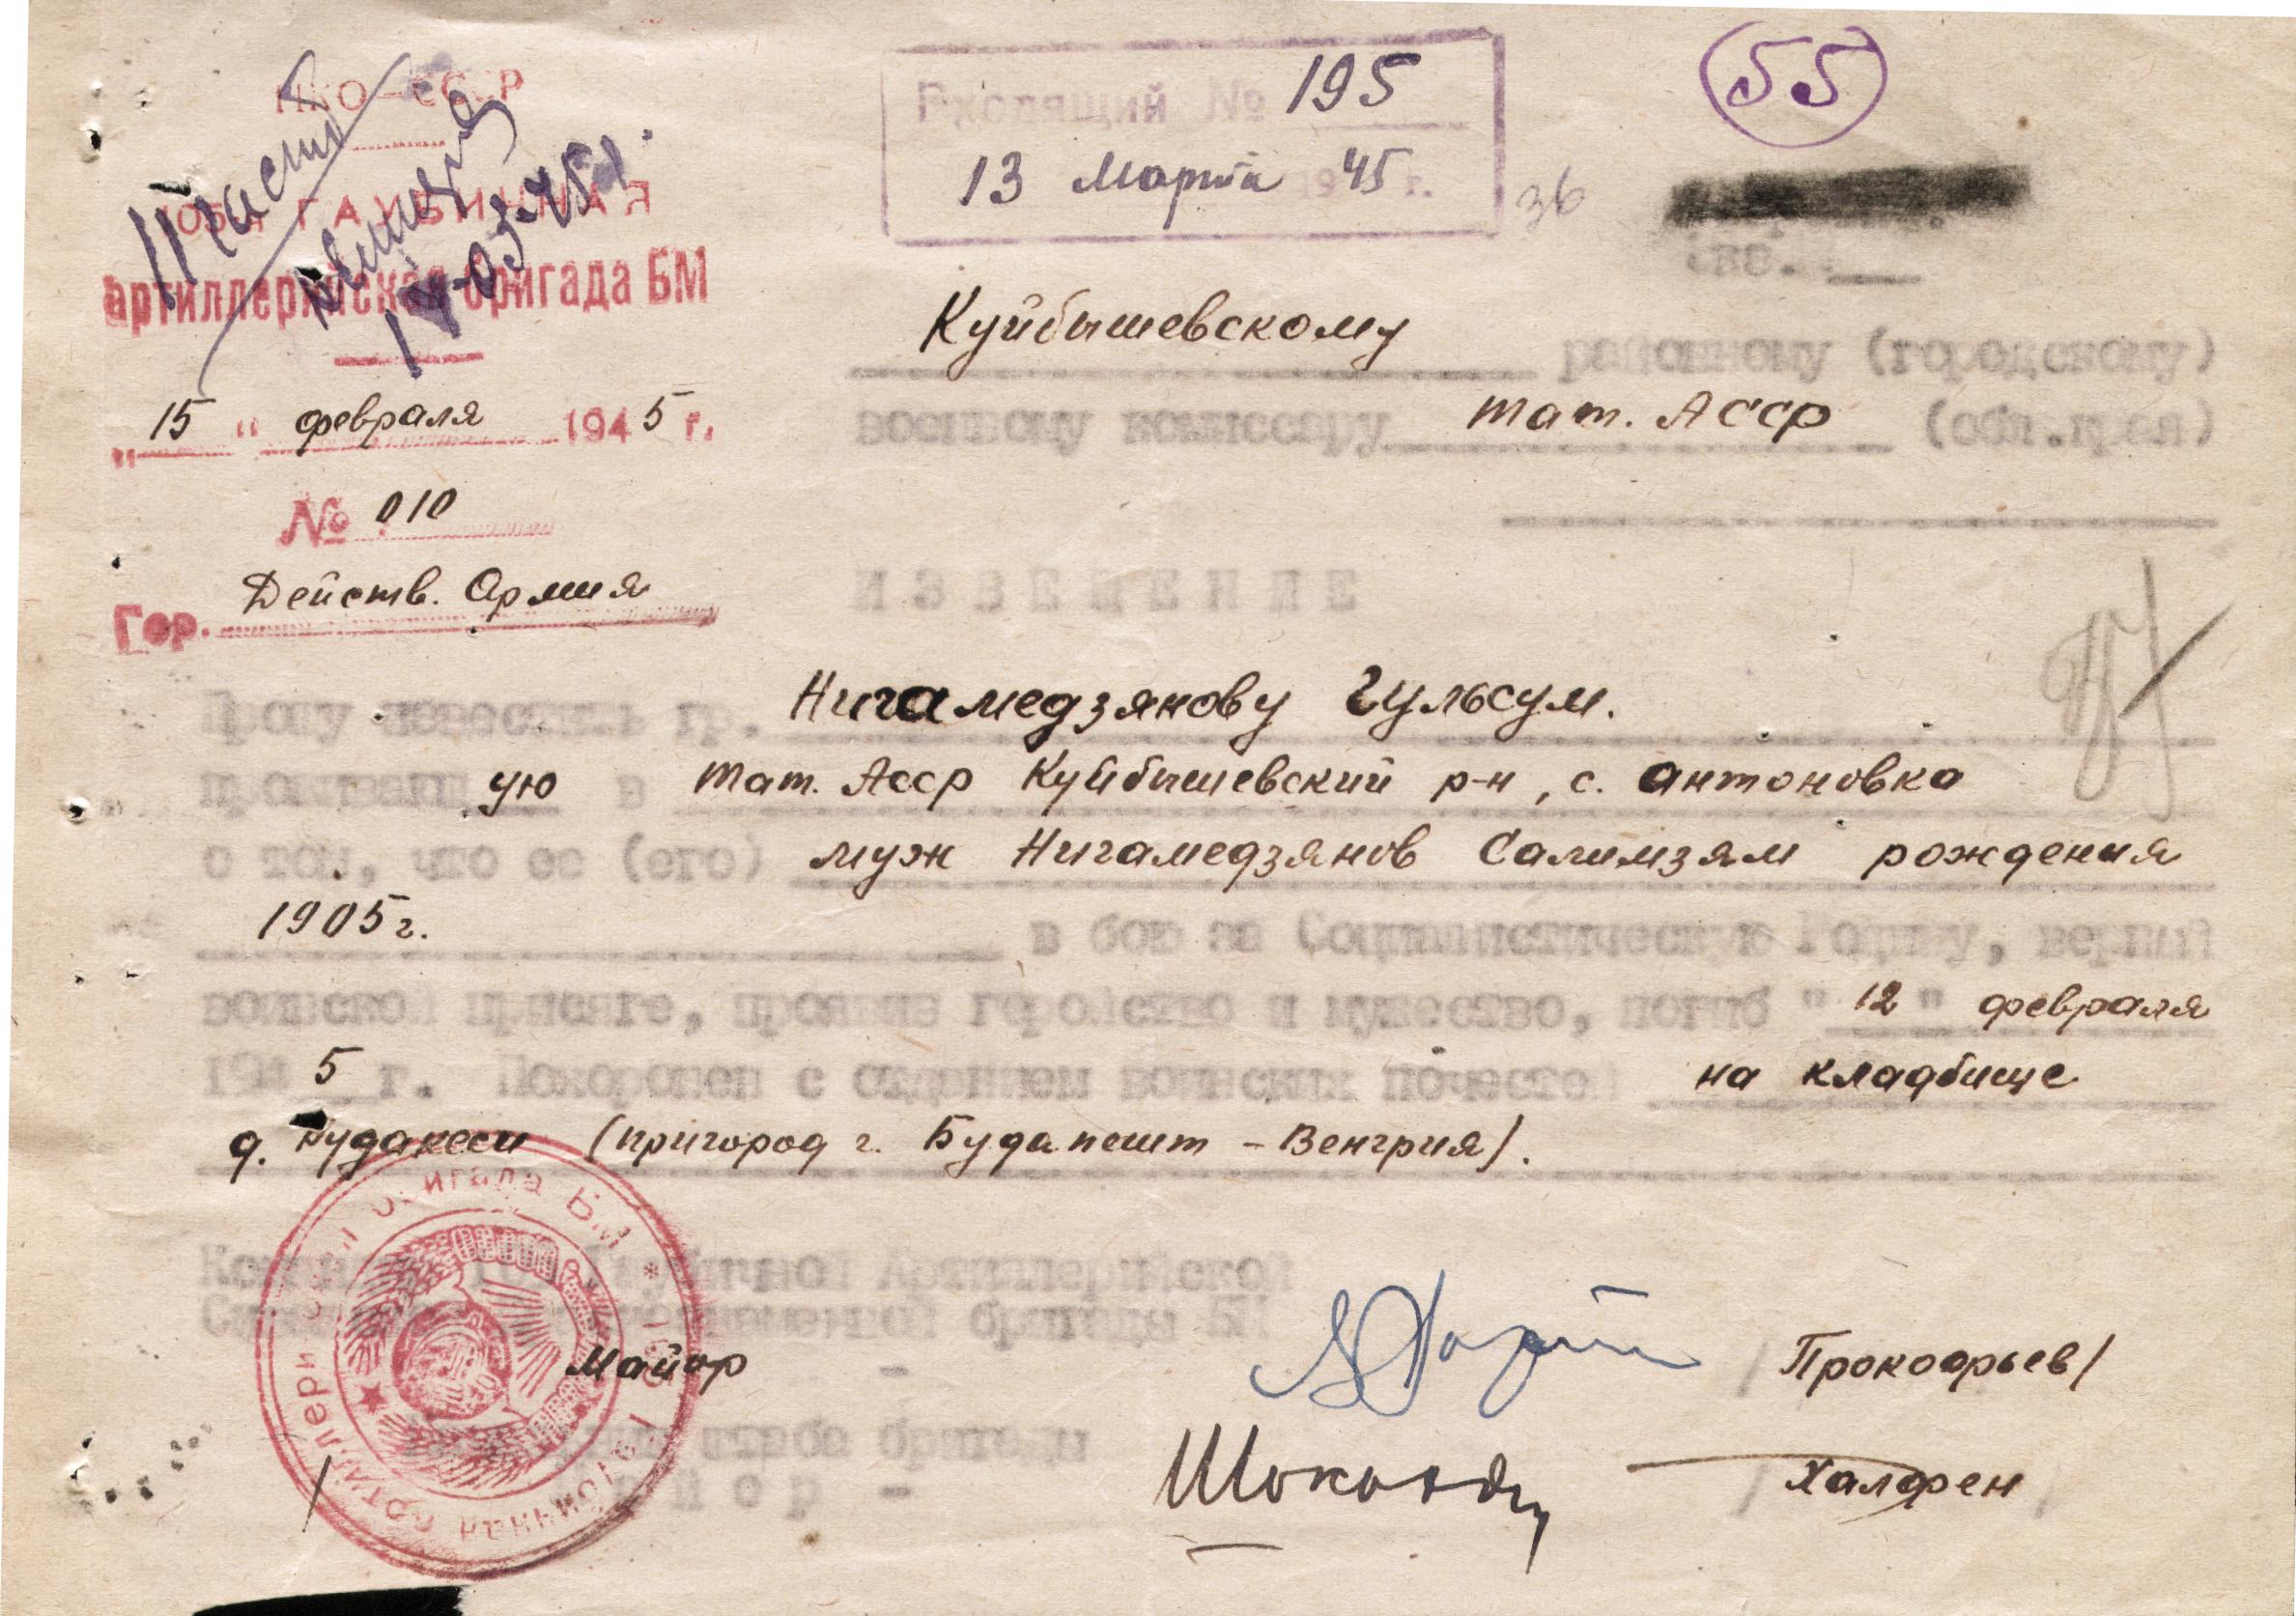 НКО-СССР
Входящий № 195
13 Марта 1945 г.
55
36
ГАУБИЧНАЯ
артиллерийская бригада БМ
14-03-45г.
Экз.
Куйбышевскому районному (городскому)
"15" февраля 1945 г.
военному комиссару Тат. АССР (обл. края)
№ 010
Гор. Действ. Армия
ИЗВЕЩЕНИЕ
Прошу известить гр. Нигамедзянову Гульсум.
проживающ ую в Тат. Асср Куйбышевский р-н, с. Антоновка
о том, что ее (его) муж Нигамедзянов Салимзям рождения
1905г. в бою за Социалистическую Родину, верный
воинской присяге, проявив геройство и мужество, погиб "12" февраля
1945 г. Похоронен с отданием воинских почестей на кладбище
д. Будакеси (пригород г. Будапешт - Венгрия).
Гаубичной Артиллерийской
бригады БМ
Майор - /Прокофьев/
штаба бригады
Майор - /Халфен/